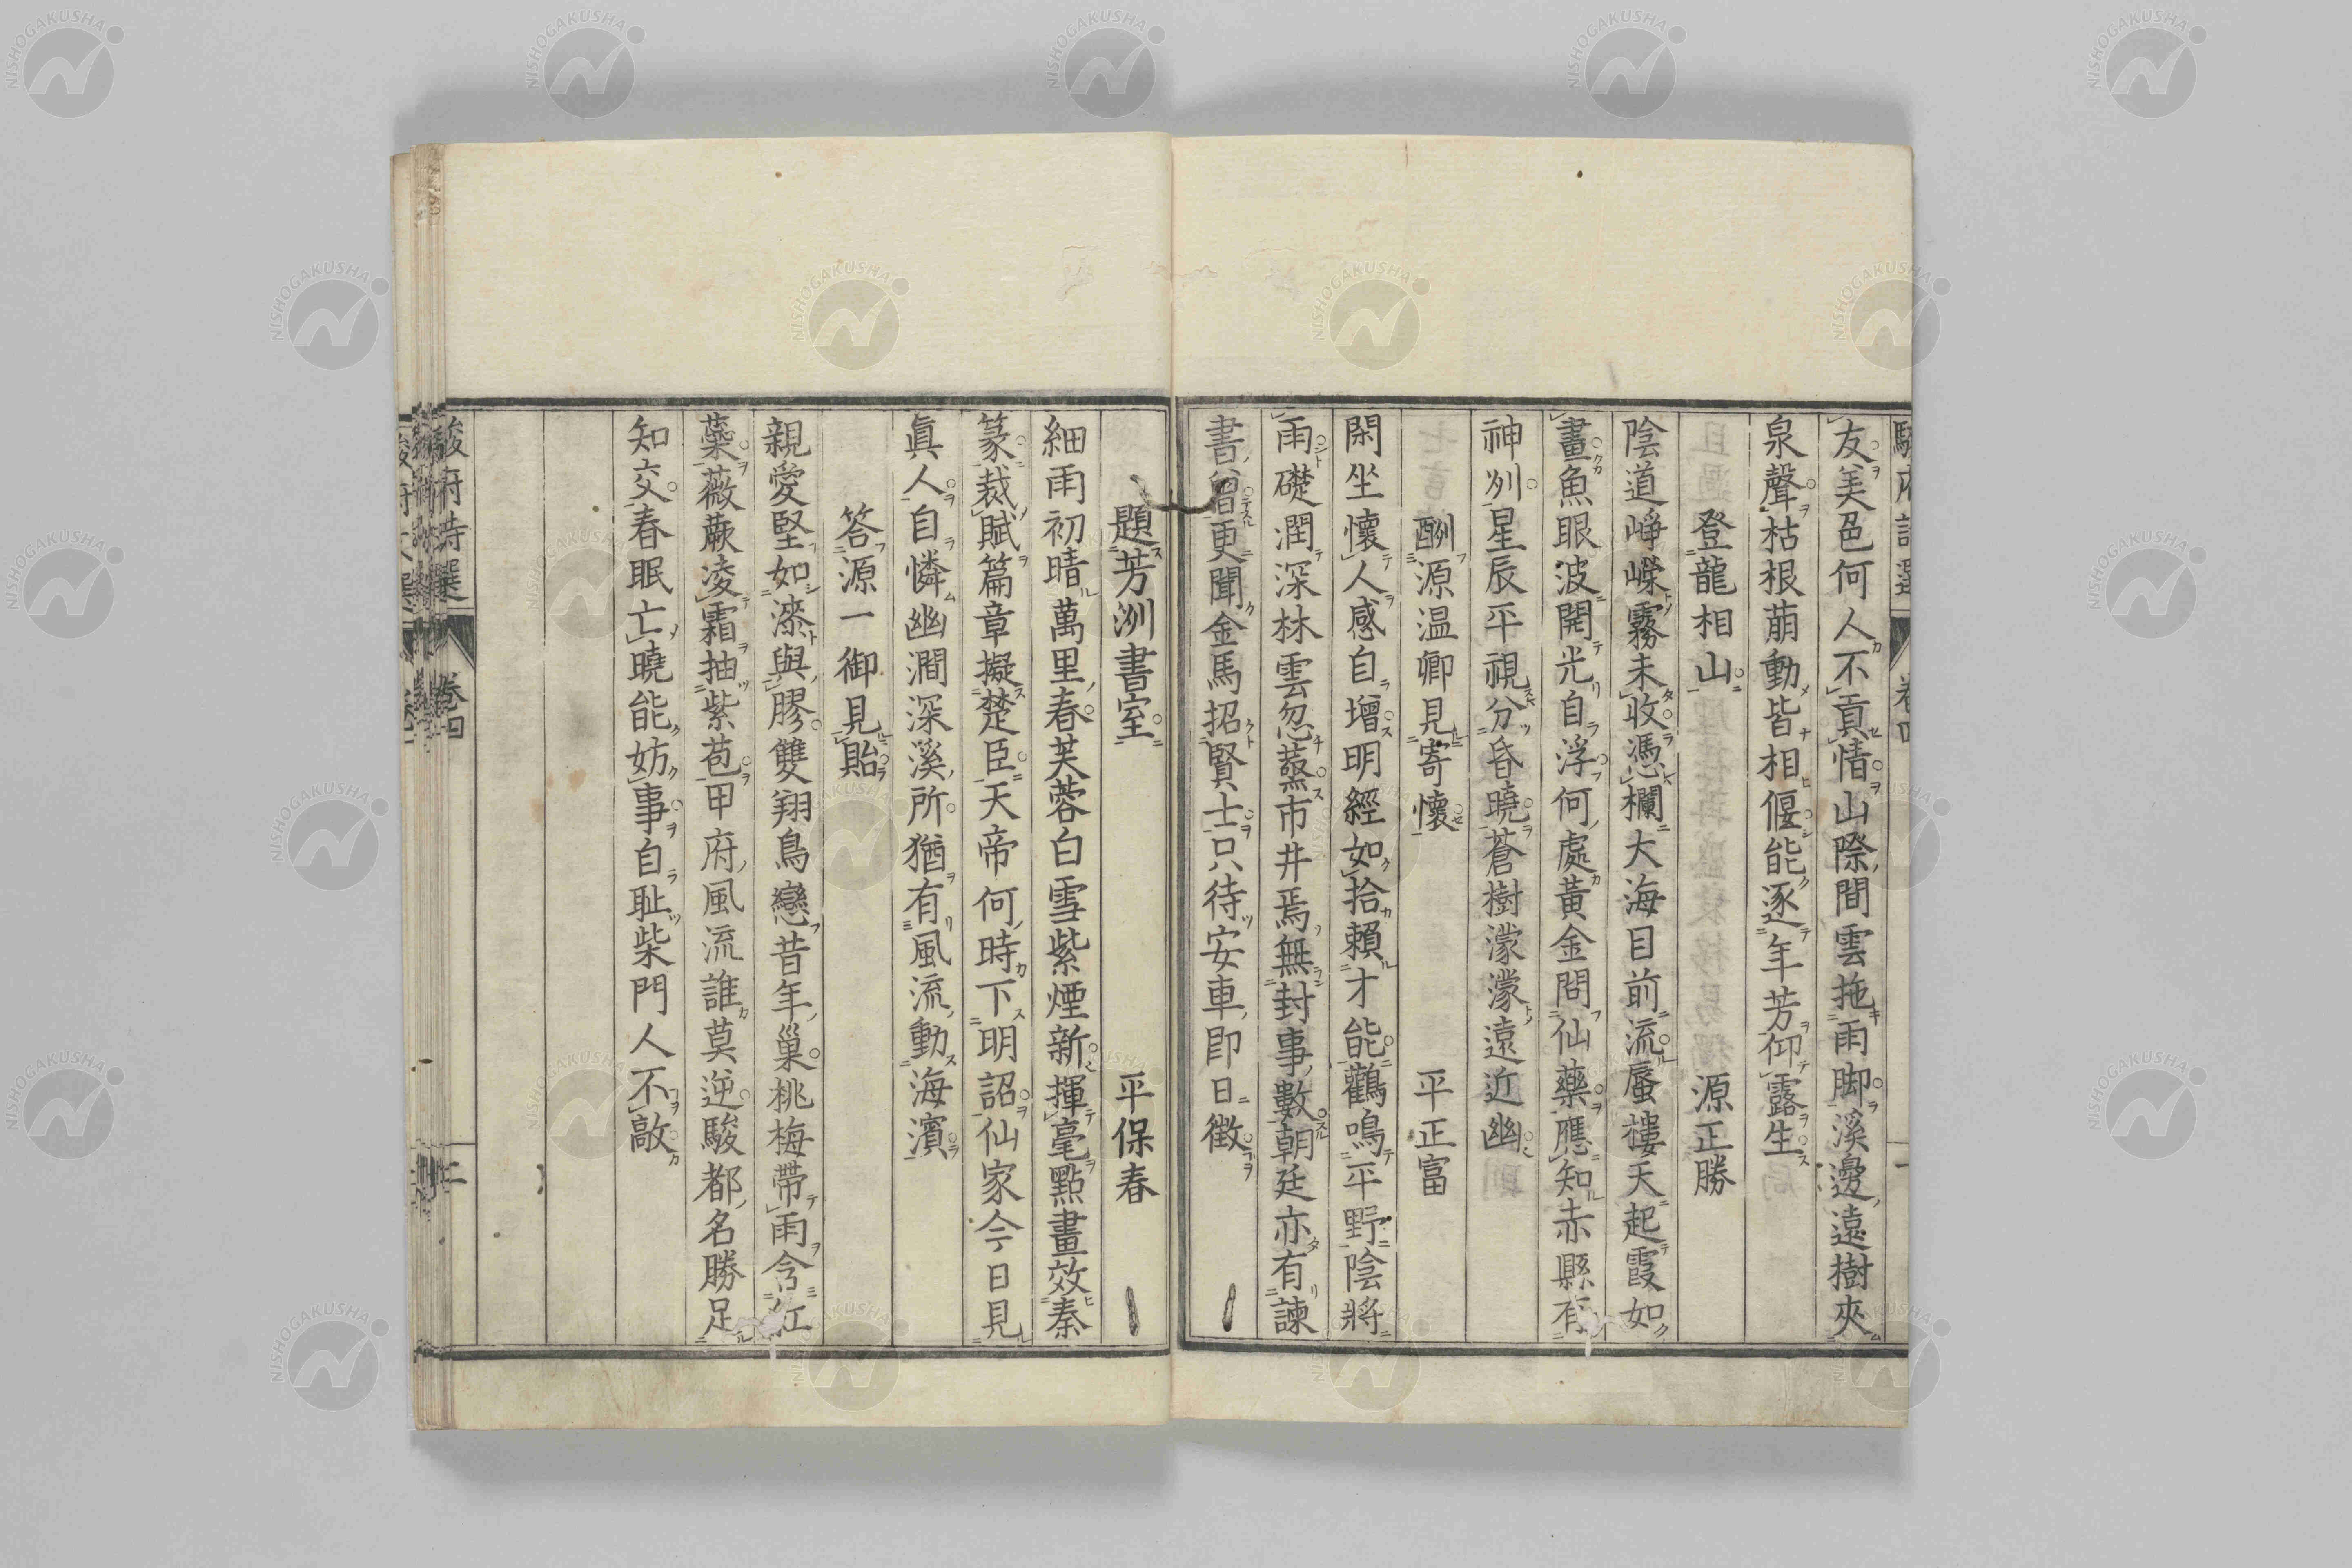 友美邑何人不貢情山際間雲拖雨脚溪邊遠樹夾
泉聲枯根萠動皆相偃能逐年芳仰露生
登龍相山 源正勝
陰道崢嶸霧未收憑欄大海目前流蜃樓天起霞如
畫魚眼波開光自浮何處黃金問仙藥應知赤縣有
神州星辰平視分昏曉蒼樹濛濛遠近幽
酬源温卿見寄懷 平正富
閑坐懷人感自增明經如拾賴才能鸛鳴平野陰將
雨礎潤深林雲忽蒸市井焉無封事數朝廷亦有諫
書曾更聞金馬招賢士只待安車即日徵
題芳洲書室 平保春
細雨初晴萬里春芙蓉白雪紫煙新揮毫點畫效秦
篆裁賦篇章擬楚臣天帝何時下明詔仙家今日見
眞人自憐幽澗深溪所猶有風流動海濱
答源一御見貽
親愛堅如漆與膠雙翔鳥戀昔年巢桃梅帶雨含紅
蘂薇蕨凌霜抽紫苞甲府風流誰莫逆駿都名勝足
知交春眠亡曉能妨事自耻柴門人不敲
駿府詩選 卷四 二